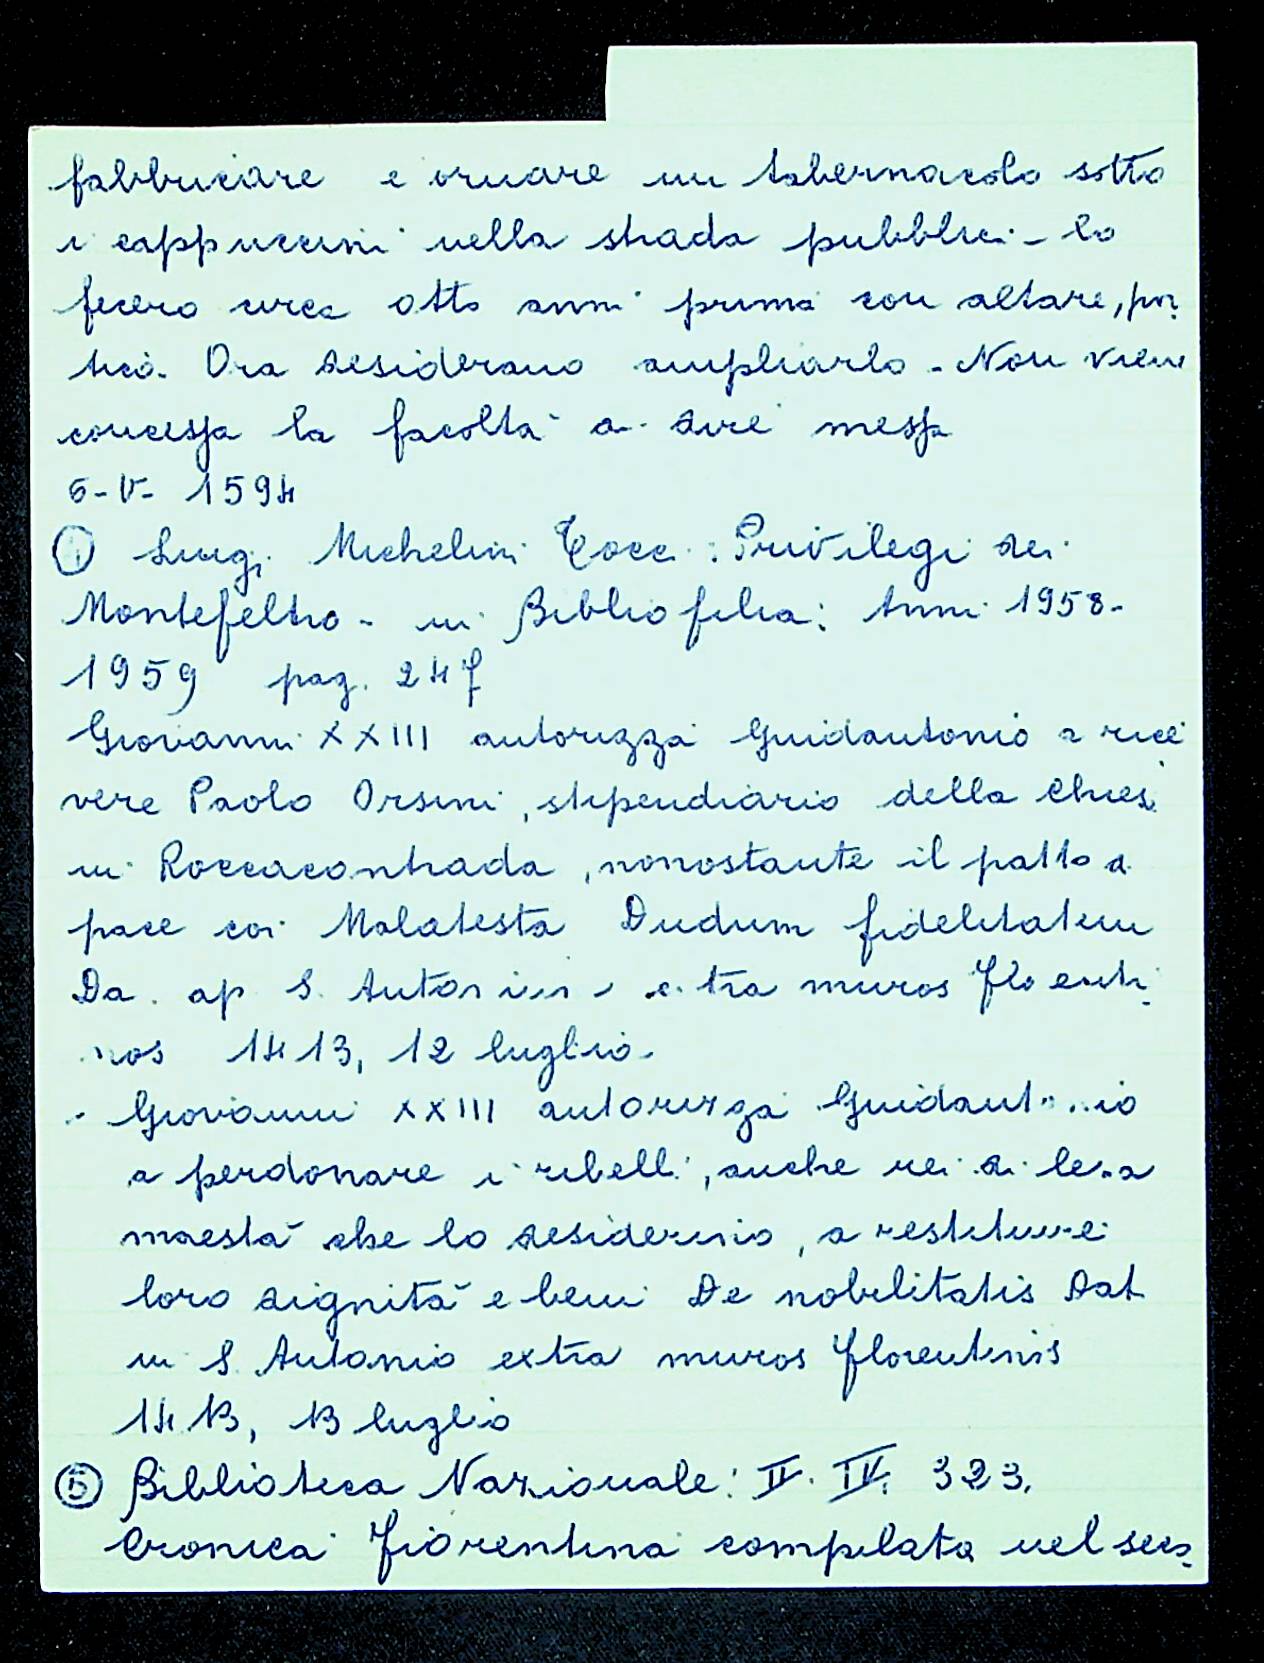 fabbricare e ornare un tabernacolo sotto
i cappuccini nella strada pubblica - lo
fecero circa otto anni prima con altare, por
tico. Ora desiderano ampliarlo - Non viene
concessa la facoltà di dire messa
6-V- 1594
④ Luigi Michelini Tocci : Privilegi dei
Montefeltro - in Bibliofilia : Anni 1958-
1959 pag. 247
Giovanni XXIII autorizza Guidantonio a rice
vere Paolo Orsini, stipendiario della Chiesa
in Roccacontrada, nonostante il patto di
pace coi Malatesta Dudum fidelitatem
Da. ap S. Antonium extra muros florenti
nos 1413, 12 luglio -
- Giovanni XXIII autorizza Guidantonio
a perdonare i ribelli, anche rei di lesa
maestà che lo desiderino, a restituire
loro dignità e beni De nobilitatis Dat
in S. Antonio extra muros florentinis
1413, 13 luglio
⑤ Biblioteca Nazionale : II. IV. 323.
Cronica fiorentina compilata nel seco